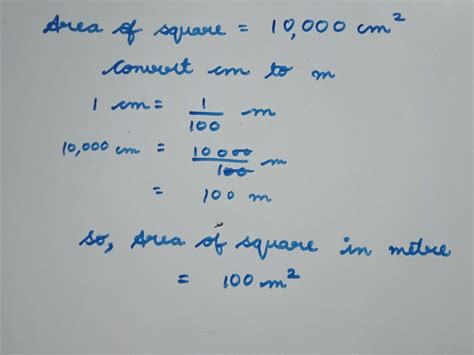 Area of square = 10,000 cm²
Convert cm to m
1 cm = 1/100 m
10,000 cm = 10000/100 m
= 100 m
So, Area of square in metre
= 100 m²